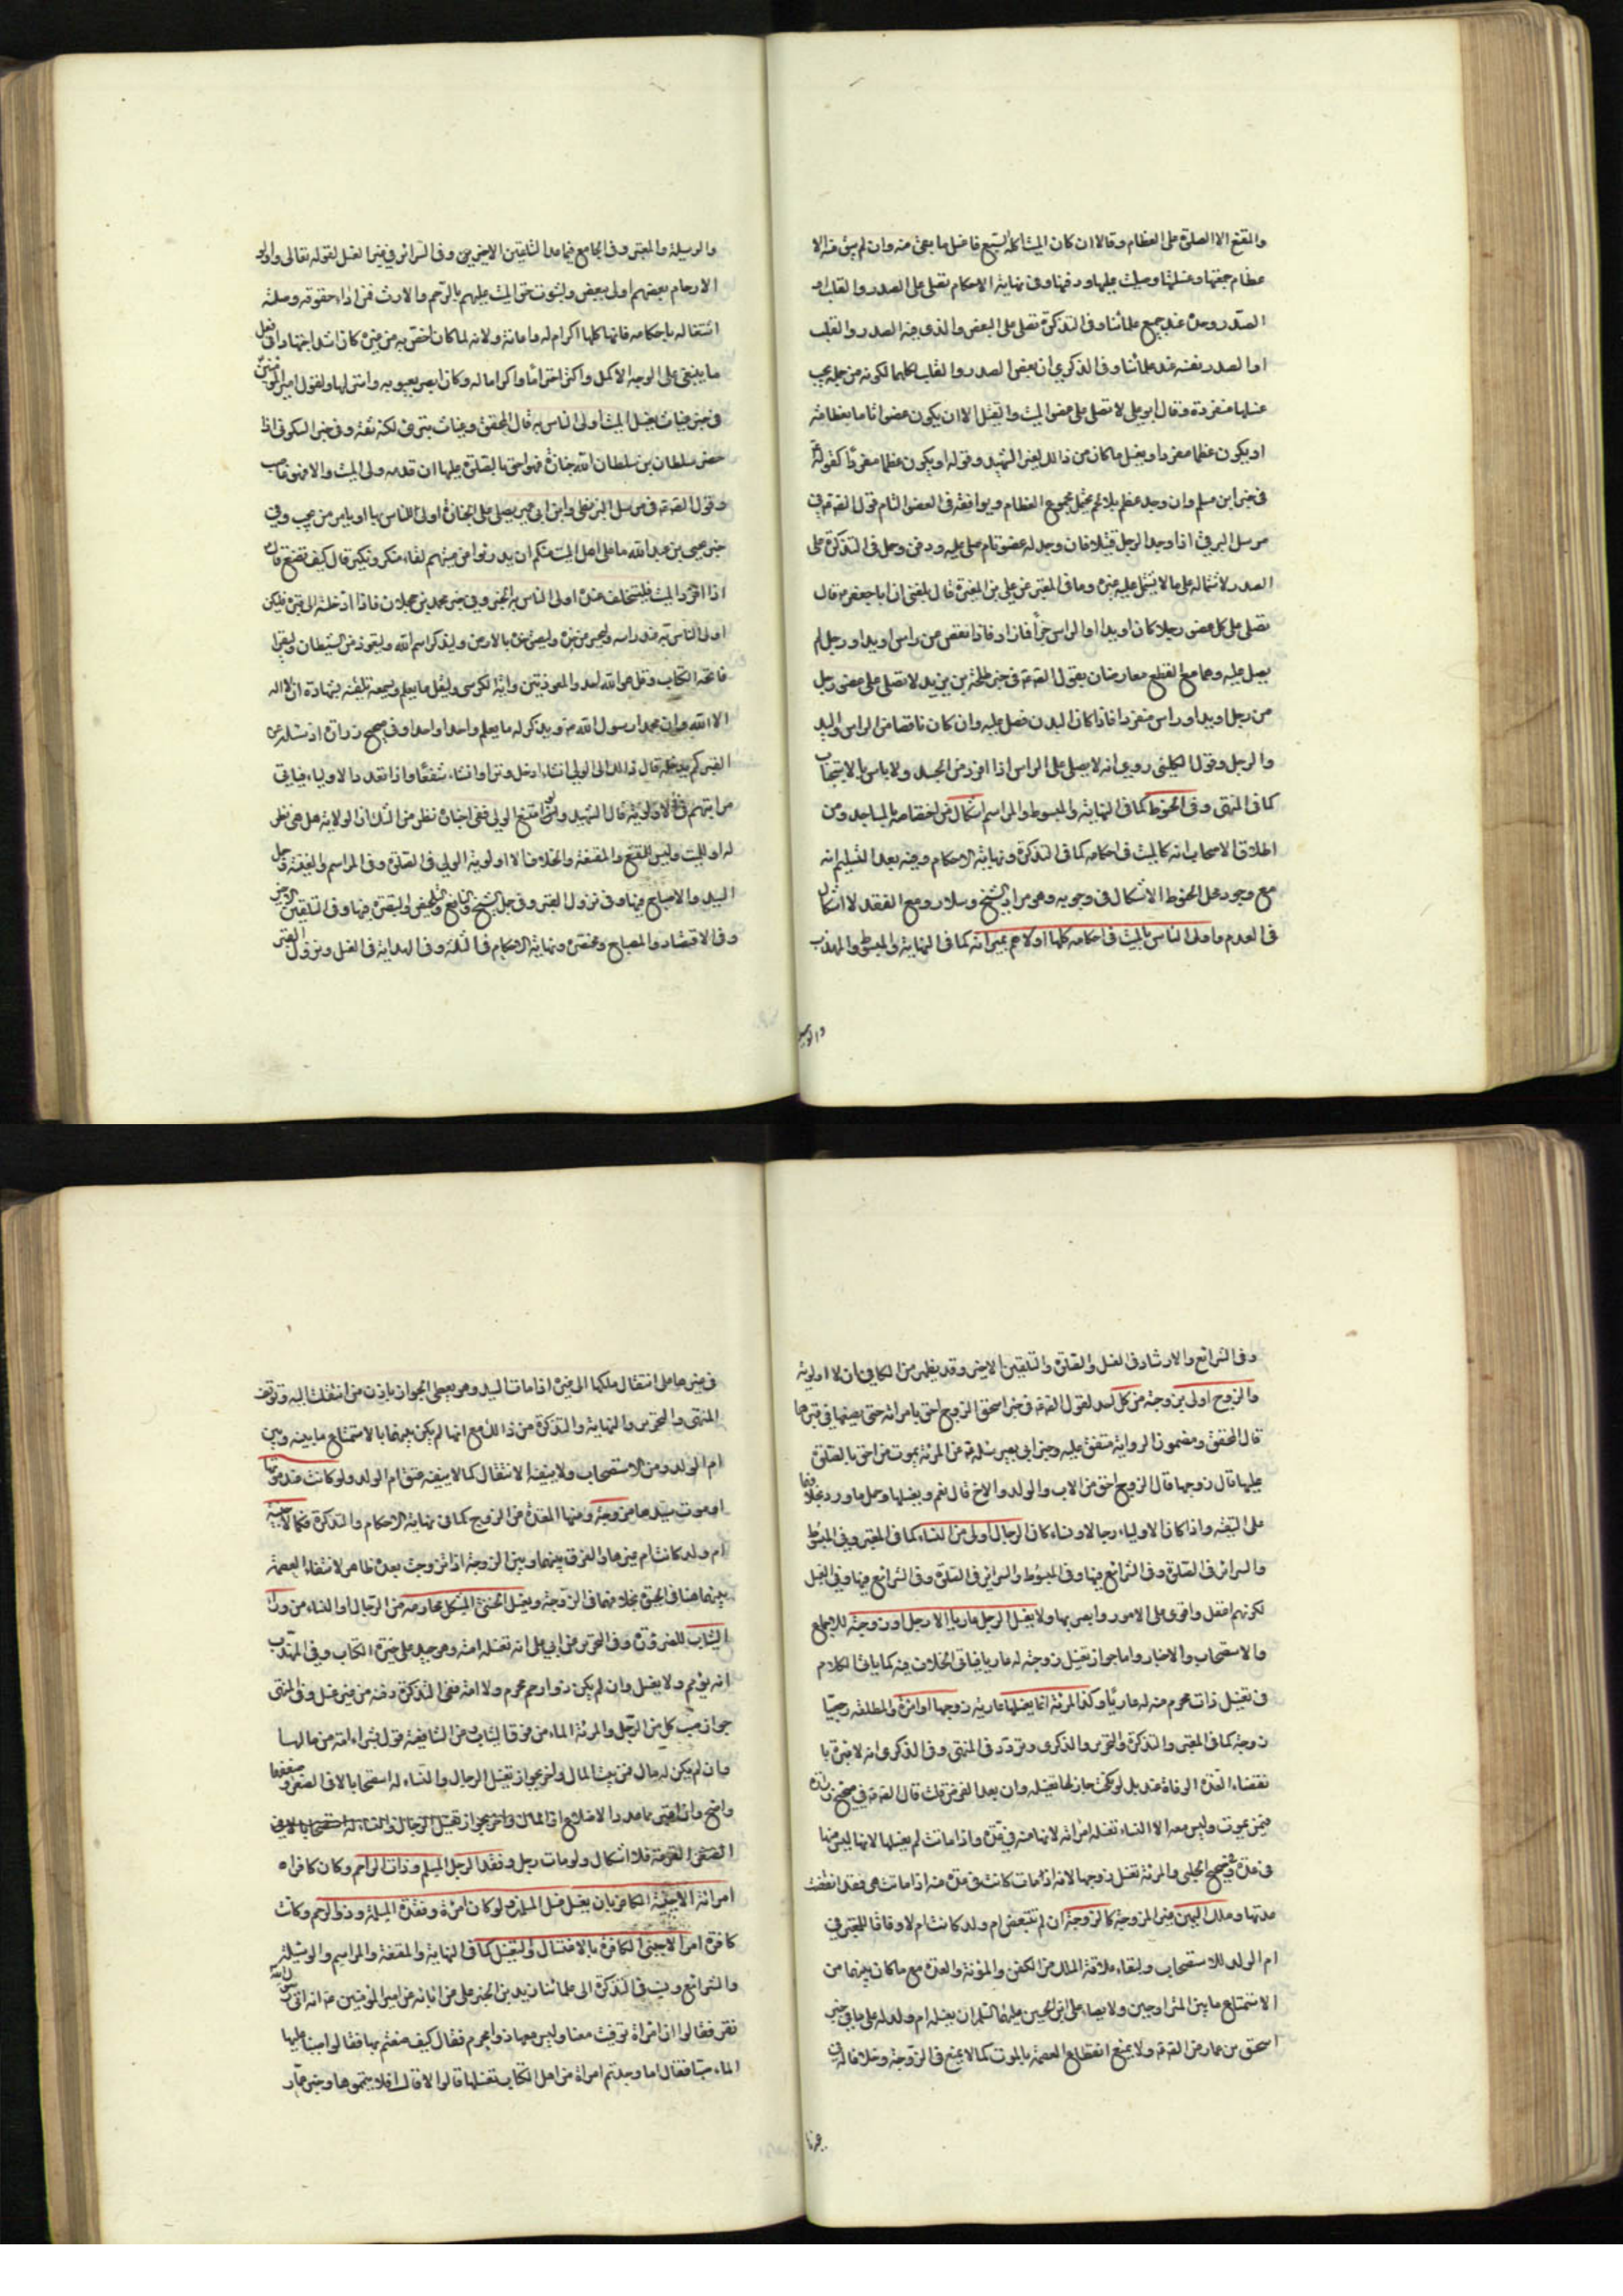 والمقنع الا الصلوة على العظام وقالا ان كان الميت اكله السبع فاغسل ما بقى منه وان لم يبق منه الا
عظام جمعتها وغسلتها وصليت عليها ودفنتها وفى نهاية الاحكام تصلى على الصدر والقلب او
الصدر وحده عند جميع علمائنا وفى التذكرة تصلى على البعض والذى فيه الصدر والقلب
او الصدر نفسه عند علمائنا وفى الذكرى ان بعض الصدر والقلب كلهما لكونه من جملة يجب
غسلها منفردة وقال ابو على لا تصلى على عضو الميت والقتيل الا ان يكون عضوا تاما بعظامه
او يكون عظما مفردا ويغسل ما كان من ذالك لغير الشهيد وقوله او يكون عظما مفردا كقوله
فى خبر ابن مسلم وان وجد عظم بلا لحم يحتمل مجموع العظام ويوافقه فى العضو التام قول الصادق فى
مرسل البرقى اذا وجد الرجل قتيلا فان وجد له عضو تام صلى عليه ودفن وحمل فى التذكرة على
الصدر لاشتماله على ما لا يشتمل عليه غيره وما فى المعتبر عن على بن المغيرة قال بلغنى ان ابا جعفر قال
تصلى على كل عضو رجلا كان او يدا او الراس جزأ فما زاد فاذا نقص من راس او يد او رجل لم
يصل عليه وهما مع القطع معارضان بقول الصادق فى خبر طلحة بن زيد لا تصلى على عضو رجل
من رجل او يد او راس منفردا فاذا كان البدن فصل عليه وان كان ناقصا من الراس واليد
والرجل وقول الكلينى روى انه لا يصلى على الراس اذا افرد من الجسد ولا باس بالاستحباب
كما فى المنتهى وفى الحنوط كما فى النهاية والمبسوط والمراسم اشكال من اختصاصه بالمساجد ومن
اطلاق الاصحاب انه كالميت فى احكامه كما فى التذكرة ونهاية الاحكام وفيه بعد التسليم انه
مع وجود محل الحنوط لا اشكال فى وجوبه وهو مراد الشيخ وسلار ومع الفقد لا اشكال
فى العدم واولى الناس بالميت فى احكامه كلها اولاهم بميراثه كما فى النهاية والمبسوط والمهذب
والوسيلة
والوسيلة والمعتبر وفى الجامع فيما عدا التلقين الاخير وفى السرائر فى غير الغسل لقوله تعالى واولو
الارحام بعضهم اولى ببعض ولثبوت حق الميت عليهم بالرحم والارث فمن اداء حقوقه وصلته
اشتغاله باحكامه فانها كلها اكرام له واعانة ولانه لما كان اخص به من غيره كان اشد اجتهادا فى فعل
ما ينبغى على الوجه الاكمل واكثر احتراما واكراما له وكان ابصر بعيوبه واستر لها ولقول امير المؤمنين
فى خبر غياث يغسل الميت اولى الناس به قال المحقق وغياث بترى لكنه ثقة وفى خبر السكونى اذا
حضر سلطان من سلطان الله جنازة فهو احق بالصلوة عليها ان قدمه ولى الميت والا فهو غاصب
وقول الصادق فى مرسل البزنطى وابن ابى عمير يصلى على الجنازة اولى الناس بها او يامر من يحب وفى
خبر يحيى بن عبد الله ما على اهل الميت منكم ان يدرءوا عن ميتهم لقاء منكر ونكير قال كيف نصنع قال
اذا افرد الميت فليتخلف عنده اولى الناس به الخبر وفى خبر محمد بن عجلان فاذا ادخلته الى قبره فليكن
اولى الناس به عند راسه وليحسر عن خده وليلصق خده بالارض وليذكر اسم الله وليتعوذ من الشيطان وليقرأ
فاتحة الكتاب وقل هو الله احد والمعوذتين واية الكرسى وليقل ما يعلم ويسمعه تلقينه شهادة ان لا اله
الا الله وان محمدا رسول الله ويذكر له ما يعلم واحدا واحدا وفى صحيح زرارة اذ سئله عن
القبر كم يدخله قال ذالك الى الولى ان شاء ادخل وترا وان شاء شفعا واذا تعدد الاولياء فياتى
مراتبهم فى الاولوية قال الشهيد ولو امتنع الولى ففى اجباره نظر من الشك ان الولاية هل هى نظر
له او للميت وليس للمقنع والمقنعة والخلاف الا اولوية الولى فى الصلوة وفى المراسم والغنية وجمل
السيد والاصباح فيها وفى نزول القبر وفى جمل الشيخ والنافع والتلخيص والتبصرة فيها وفى التلقين الاخير
وفى الاقتصاد والمصباح ومختصره ونهاية الاحكام فى الثلثة وفى الهداية فى الغسل ونزول القبر
وفى الشرائع والارشاد فى الغسل والصلوة والتلقين الاخير وقد يظهر من الكافى ان لا اولوية
والزوج اولى بزوجته من كل احد لقول الصادق فى خبر اسحق الزوج احق بامراته حتى يضعها فى قبرها
قال المحقق ومضمون الرواية متفق عليه وخبر ابى بصير سئله عن المرئة يموت من احق بالصلوة
عليها قال زوجها قال الزوج احق من الاب والولد والاخ قال نعم ويغسلها وحمل ما ورد بخلافها
على التقية واذا كان الاولياء رجالا ونساء كان الرجال اولى من النساء كما فى المعتبر وفى المبسوط
والسرائر فى الصلوة وفى الشرائع فيها وفى المبسوط والسرائر فى الصلوة وفى الشرائع فيها وفى الغسل
لكونهم اعقل واقوى على الامور وابصر بها ولا يغسل الرجل عاريا الا رجل او زوجته للاجماع
والاستصحاب والاخبار واما جواز تغسيل زوجته له عاريا فياتى الخلاف فيه كما ياتى الكلام
فى تغسيل ذات محرم منه له عاريا وكذا المرئة انما يغسلها عارية زوجها او امرئة والمطلقة رجعيا
زوجة كما فى المعتبر والتذكرة والتحرير والذكرى وتردد فى المنتهى وفى الذكرى انه لا عبرة با
نقضاء العدة الوفاة عند بل لو نكحت جاز لها تغسيله وان بعد الفرض قلت قال الصادق فى صحيح زرارة
فيمن يموت وليس معه الا النساء تغسله امراته لانها منه فى عدة واذا ماتت لم يغسلها لانها ليس منها
فى عدة وفى صحيح الحلبى والمرئة تغسل زوجها لانه اذا مات كانت فى عدة منه اذا ماتت هى فقد انقضت
عدتها وملك اليمين غير المزوجة كالزوجة ان لم تتبعض ام ولد كانت ام لا وفاقا للمعتبر فى
ام الولد للاستصحاب ولبقاء علاقة الملك من الكفن والمؤنة والعدة مع ما كان بينهما من
الاستمتاع ما بين المتزاوجين ولايصاء على بن الحسين عليهما السلام ان يغسله ام ولد له على ما فى خبر
اسحق بن عمار عن الصادق ولا يمنع انقطاع العصمة بالموت كما لا يمنع فى الزوجة وخلافا له فى
غيرها
فى غيرها من انتقال ملكها الى غيره اذا مات السيد وهو يعطى الجواز باذن من انتقلت اليه وتوقف
المنتهى والتحرير والنهاية والتذكرة من ذالك مع انها لم يكن بينهما بالاستمتاع ما بينه وبين
ام الولد ومن الاستصحاب ولا ينفيه الانتقال كما لا ينفيه عتق ام الولد ولو كانت عند موتها
او موت سيدها مزوجة ومنها المعتدة من الزوج كما فى نهاية الاحكام والتذكرة فكالاجنبية
ام ولد كانت ام غيرها والفرق بينهما وبين الزوجة اذا تزوجت بعده ظاهر لانتفاء العصمة
بينهما هنا فى الحيوة بخلافهما فى الزوجة ويغسل الخنثى المشكل محارمه من الرجال او النساء من وراء
الثياب للضرورة وفى التحرير عن ابى على انه تغسله امته وهو جيد على خيرة الكتاب وفى المهذب
انه يؤمم ولا يغسل وان لم يكن ذوا رحم محرم ولا امة ففى التذكرة دفنه من غير غسل وفى المنتهى
جواز صب كل من الرجل والمرئة الماء من فوق الثياب وعن الشافعية قول بشراء امة من مالها
وان لم يكن له مال فمن بيت المال واخر بجواز تغسيل الرجال والنساء له استصحابا لما فى الصغر وضعفهما
واضح وان اعتبر بما عد الاضلاع
الضعف القرعة فلا اشكال ولو مات رجل وفقد الرجل المسلم وذات الرحم وكان كافرا
امراته الاجنبية الكافر بان يغسل غسل المسلمين ولو كان امرئة وفقدت المسلمة وذو الرحم وكانت
كافرة امر الاجنبى الكافرة بالاغتسال والتغسيل كما فى النهاية والمراسم والوسيلة
والشرائع ونسب فى التذكرة الى علمائنا زيد بن على عن ابائه عن امير المؤمنين انه اتى رسول الله
نفر فقالوا ان امراة توفيت معنا وليس معها ذو محرم فقال كيف صنعتم بها فقالوا صببنا عليها
الماء صبا فقال اما وجدتم امراة من اهل الكتاب تغسلها قالوا لا قال افلا يمموها وخبر عمار